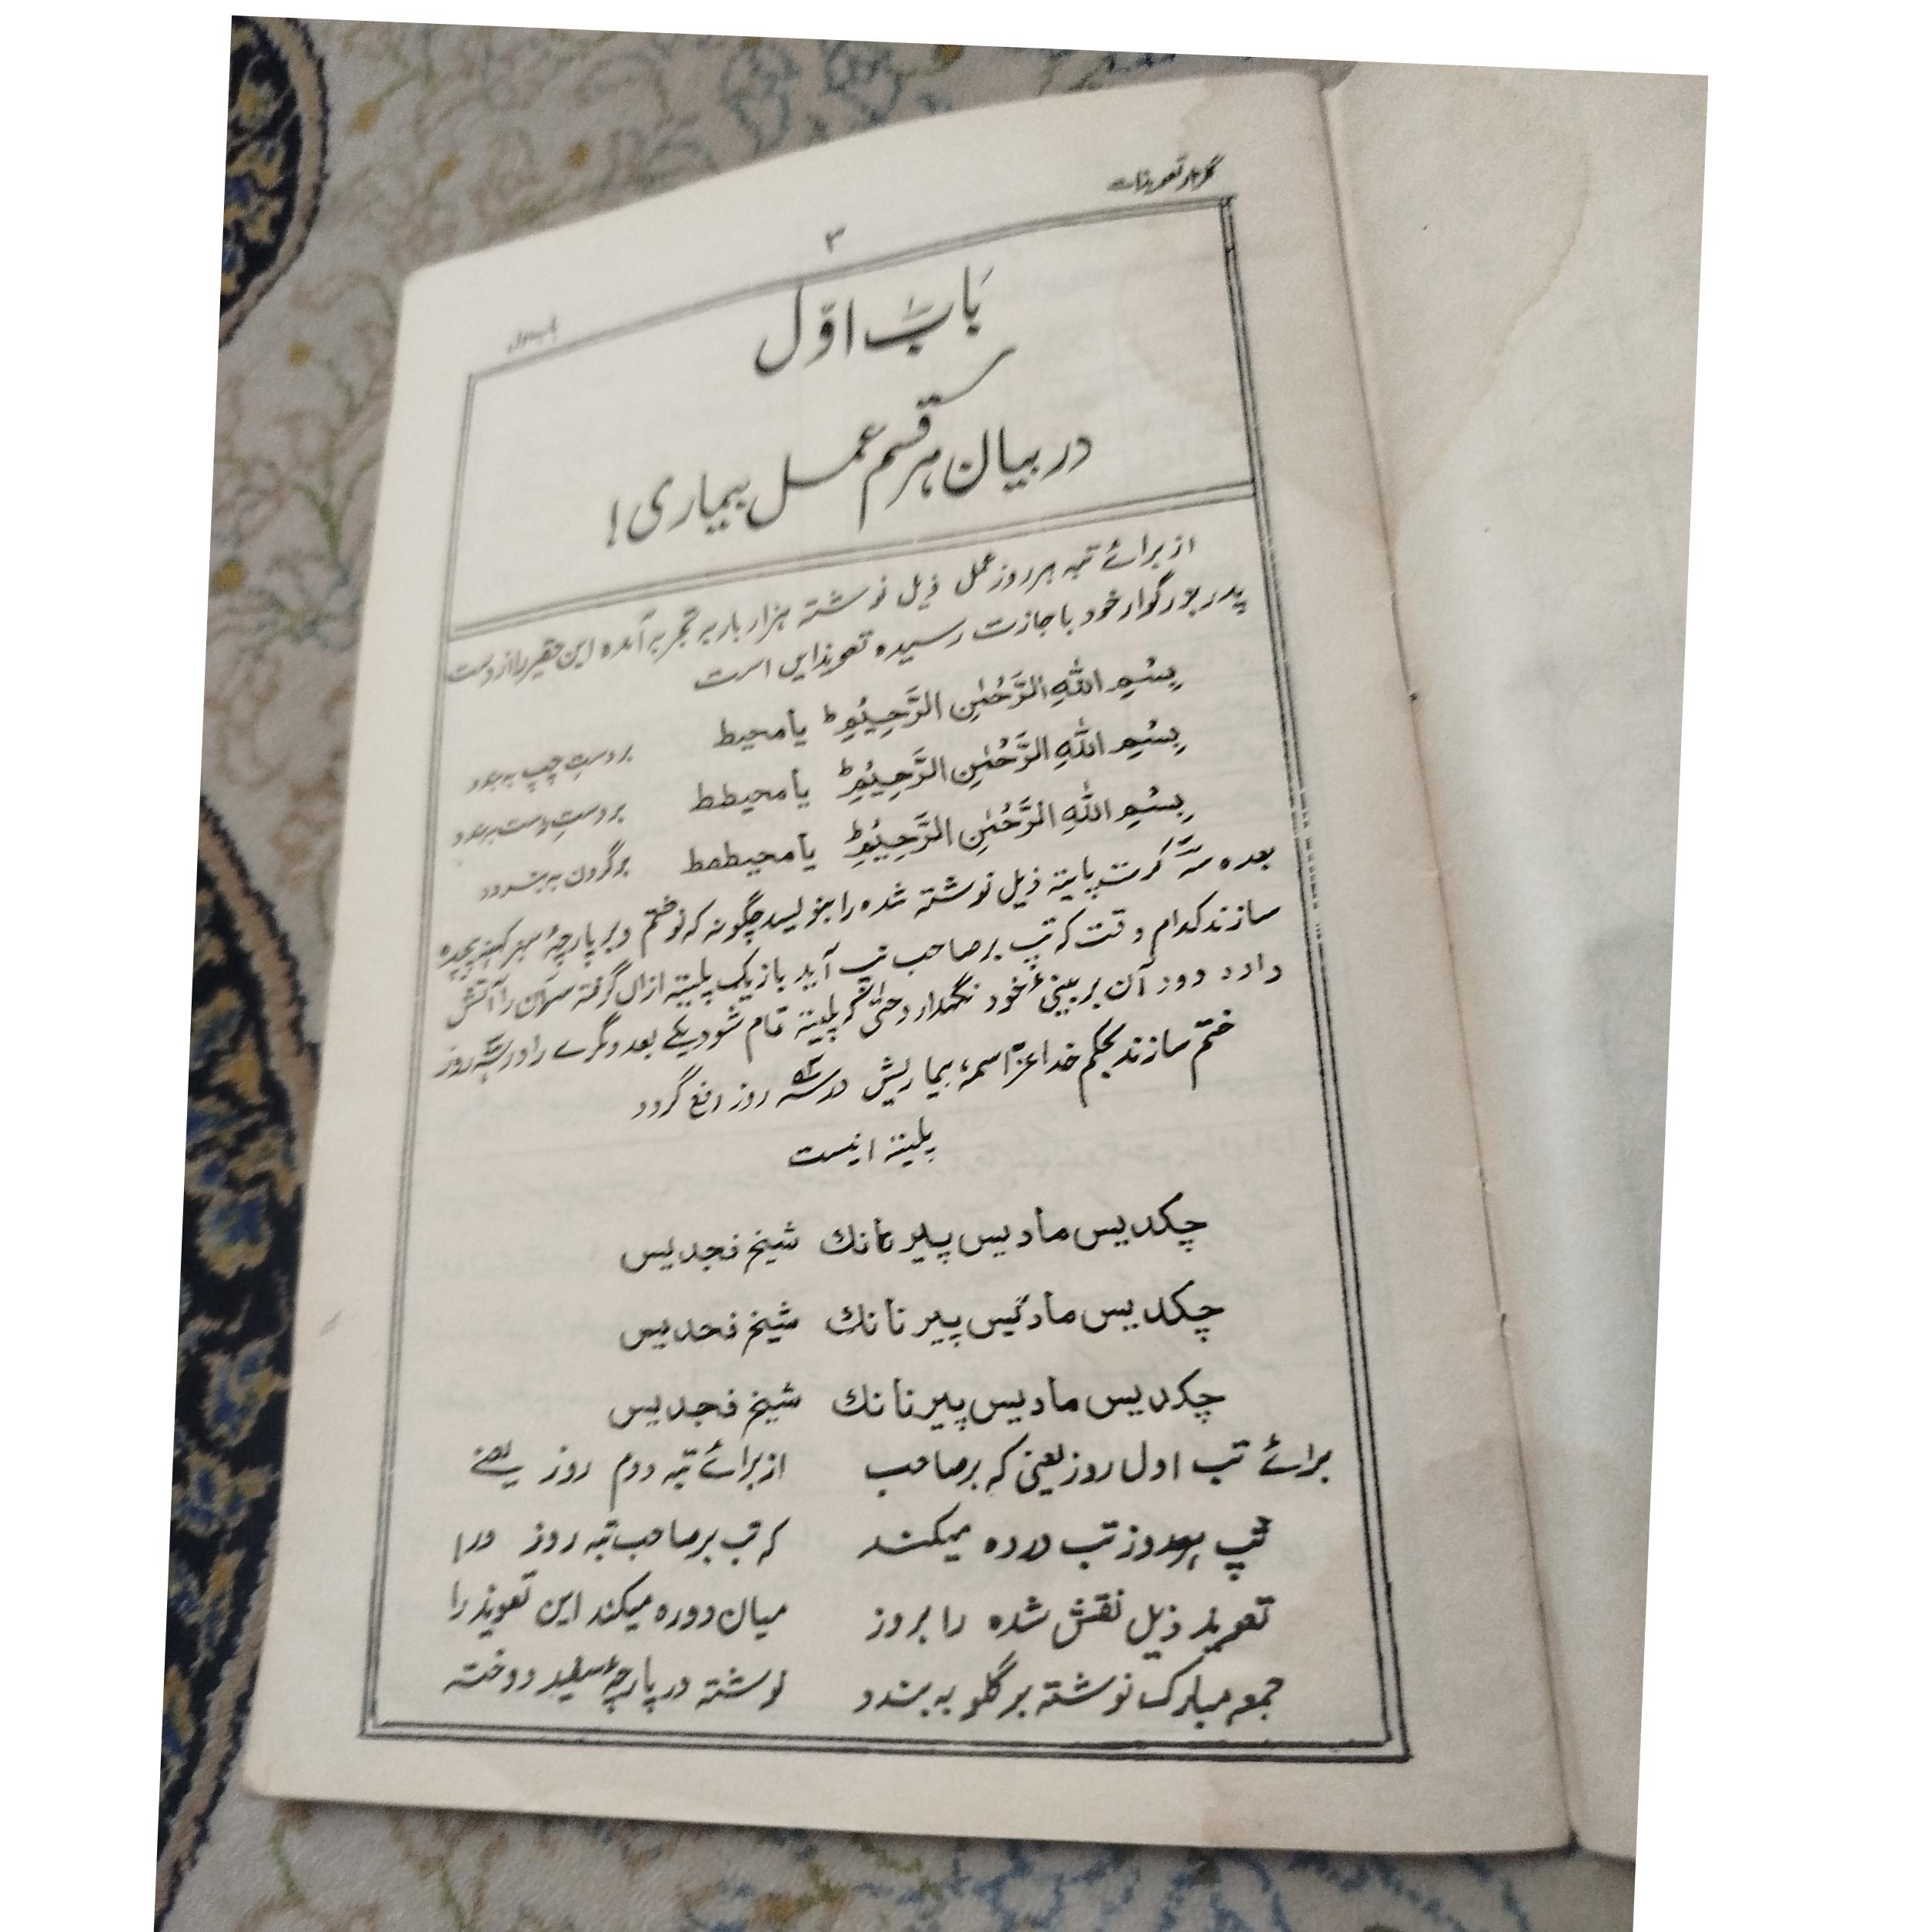 گلزار تعویذات
۳
باب اول
بَابِ اوّل
در بیان ہر قسم عمل بیماری!
از برائے تپہ ہر روز عمل ذیل نوشتہ ہزار بار بہ تجربہ آمدہ این حقیر را از دست
پدر بزرگوار خود با جازت رسیدہ تعویذ ایں است
بِسْمِ اللهِ الرَّحْمٰنِ الرَّحِيْمِ ط یا محیط بر دستِ چپ بہ بندد
بِسْمِ اللهِ الرَّحْمٰنِ الرَّحِيْمِ ط یا محیطط بر دستِ راست بہ بندد
بِسْمِ اللهِ الرَّحْمٰنِ الرَّحِيْمِ ط یا محیططط بر گردن بہ بندد
بعدہ سہ کرت پلیتہ ذیل نوشتہ شدہ را بنویسد چگونہ کہ نوشتم و بر پارچۂ سبز کہنہ پیچدہ
سازند کدام وقت کہ تپ بر صاحب تپ آید باز یک پلیتہ ازاں گرفتہ سر آن را آتش
دادد دود آن بر بینیٔ خود نگہدارد حتیٰ کہ پلیتہ تمام شود یکے بعد دگرے را در سہ روز
ختم سازند بحکم خدا عزّ اسمہ، بیماریش در سہ روز رفع گردد
پلیتہ اینست
چکدیس مادیس پیر نانك شیخ فجدیس
چکدیس مادیس پیر نانك شیخ فحدیس
چکدیس مادیس پیر نانك شیخ فجدیس
برائے تپ اول روز یعنی کہ بر صاحب
تپ ہر روز تب دررہ میکند
تعویذ ذیل نقش شدہ را بروز
جمعہ مبارک نوشتہ بر گلو بہ بندد
از برائے تپہ دوم روز یعنے
کہ تپ بر صاحب تپہ روز درا
میان دورہ میکند این تعویذ را
نوشتہ در پارچۂ سفید دوختہ